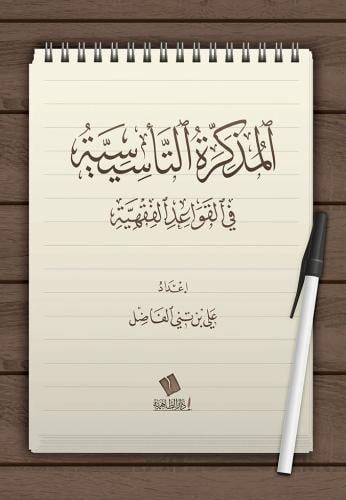 المُذَكِّرَةُ التَّأْسِيسِيَّةُ
فِي القَوَاعِدِ الفِقْهِيَّةِ
إعْدَادُ
عَلِيّ بْن تَنِي الفَاضِل
دار الظاهرية